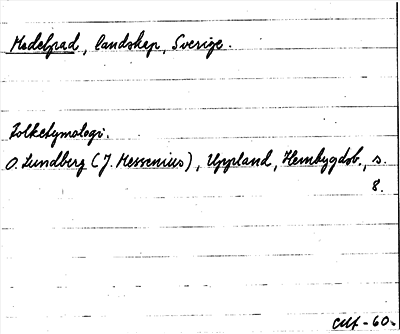 Medelpad, landskap, Sverige.
Folketymologi.
O. Lundberg (J. Messenius), Uppland, Hembygdsb., s.
8.
60.